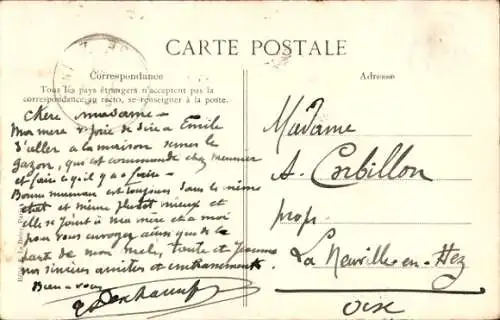 CARTE POSTALE
Correspondance
Adresse
Tous les pays étrangers n'acceptent pas la
correspondance au recto, se renseigner à la poste.
Chère Madame –
Ma mère v/prie de dire à Emile
d'aller à la maison semer le
gazon, qui est commandé chez meunier
et faire ce qu'il y a à faire –
Bonne maman est toujours dans le même
état et même plutôt mieux et
elle se joint à ma mère et à moi
pour vous envoyer ainsi que de la
part de mon toute et Jeanne
nos sincères amitiés et
Bien à vous
Madame
A. Corbillon
prop.
La Neuville-en-Hez
Oise